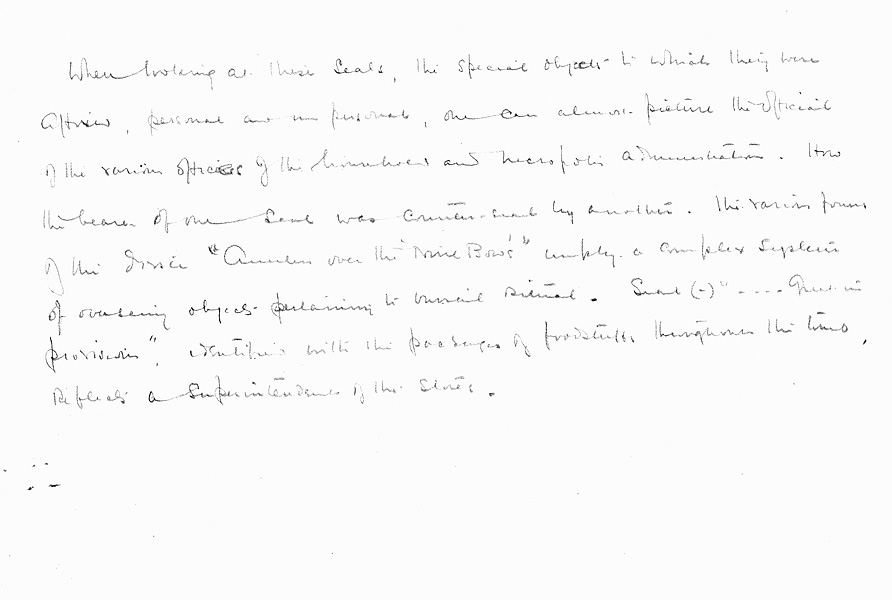 When looking at these seals, the special objects to which they were
affixed, personal and impersonal, one can almost picture the official
of the various offices of the household and necropolis administration. How
the bearer of one seal was counter-sealed by another. The various forms
of the device "Anubis over the Nine Bows" imply a complex system
of overseeing objects pertaining to burial ritual. Seal (-) " .... Great in
provisions", identified with the passages of foodstuffs throughout the tomb,
reflects a superintendence of the stores.